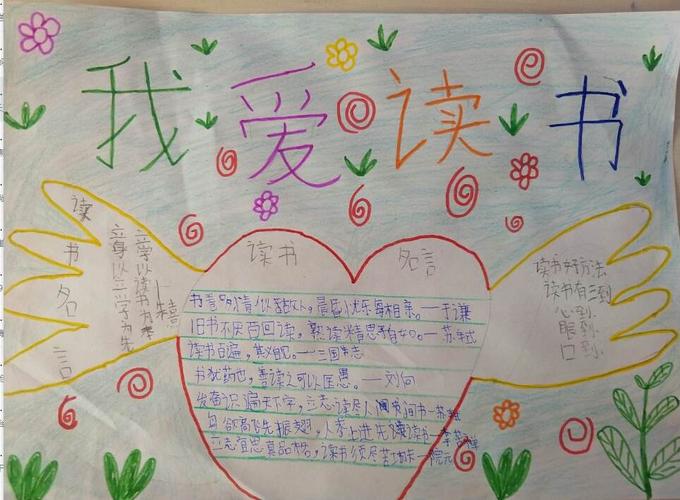 我爱读书
读书名言
立身以立学为先
立学以读书为本
读书 名言
书卷多情似故人，晨昏忧乐每相亲。——于谦
旧书不厌百回读，熟读精思子自知。——苏轼
读书百遍，其义自见。——三国志
书犹药也，善读之可以医愚。——刘向
发奋识遍天下字，立志读尽人间书——苏轼
鸟欲高飞先振翅，人求上进先读读书——李苦禅
立志宜思真品格，读书须尽苦功夫—阮元
读书好方法
读书有三到
心到
眼到
口到.